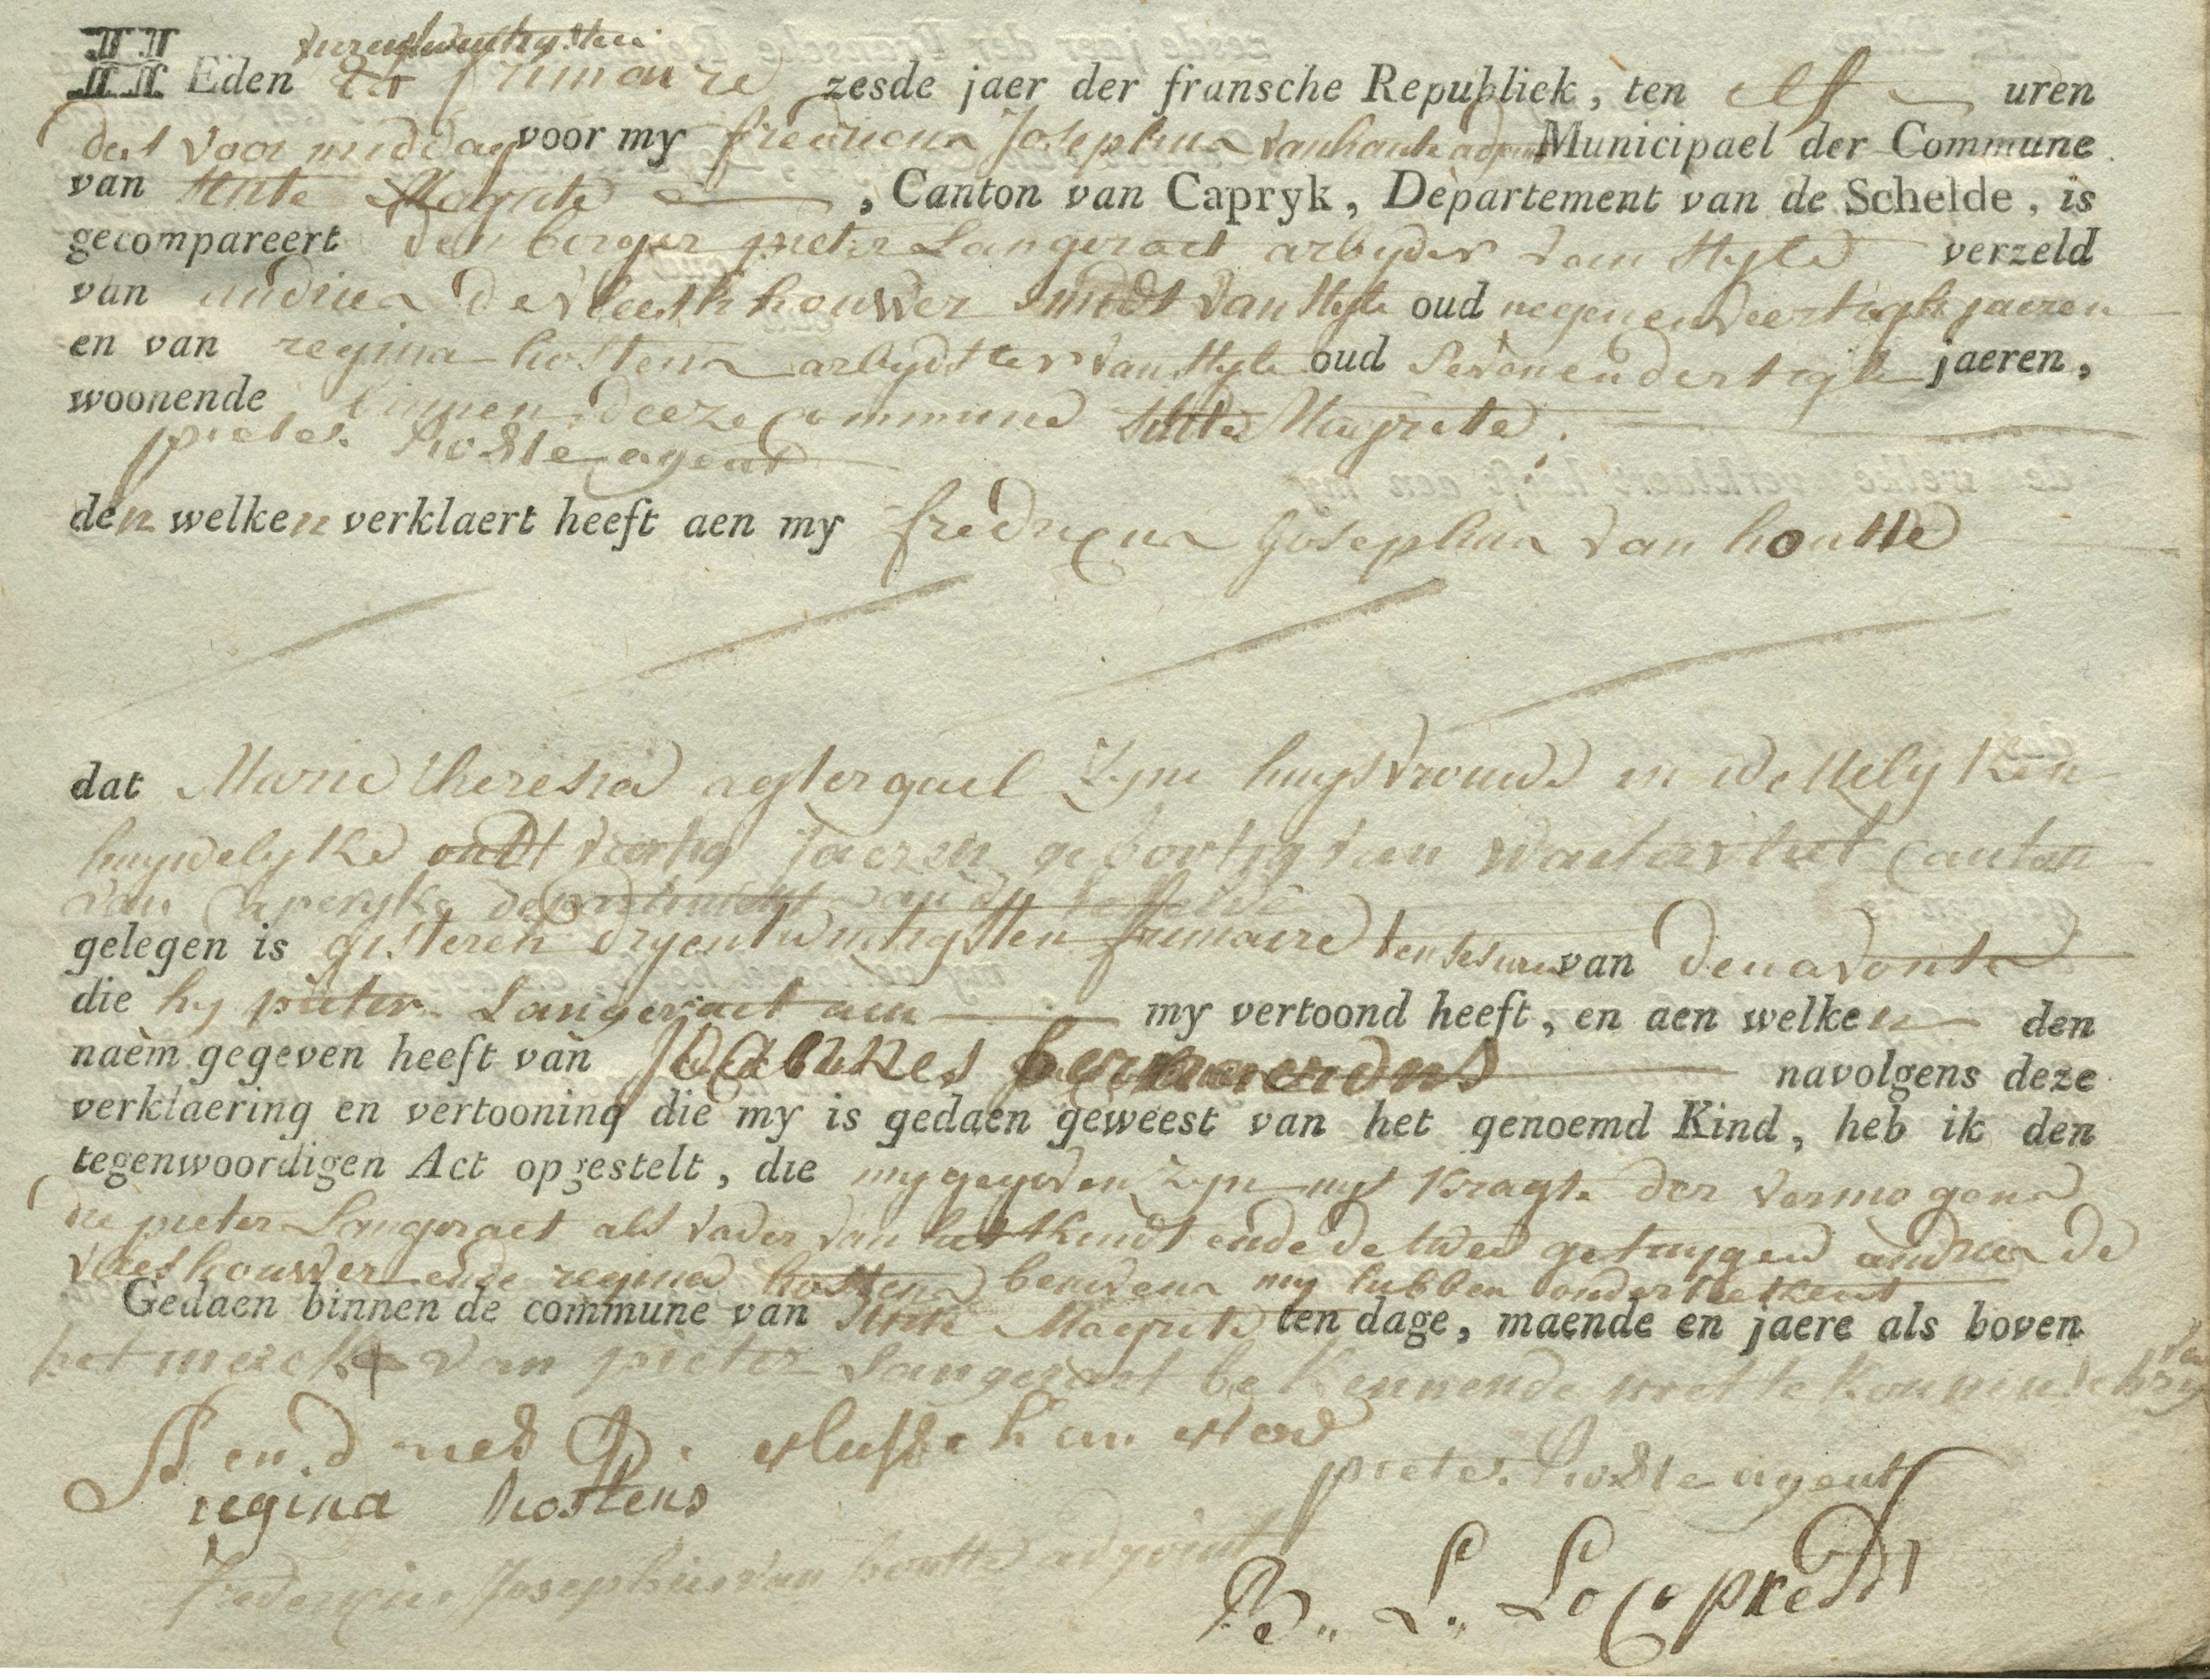 vierentwintigsten
HEden frimaire zesde jaer der fransche Republiek, ten elf uren
des voor middag voor my fredricus Josephus vanhoutte Municipael der Commune
van Sinte Magriete, Canton van Capryk, Département van de Schelde, is
gecompareert den borger pieter Langeraet arbyder van Style verzeld
van andries de vleeshhouwer van Style oud negenenveertigh jaeren
en van regina hostens arbydster van Style oud sevenendertigh jaeren,
woonende binnen deeze commune Sinte Magriete.
pieter hoste agent
den welken verklaert heeft aen my fredricus Josephus van houtte
dat Marie theresia agtergael zyne huysvrouwe in wettelyken
huywelyke oudt veertig jaeren geboortig van Watervliet canton
van Caperyke departement van de Schelde
gelegen is gisteren dryentwintigsten frimaire ten ses uren van den avonte
die hy pieter Langeraet aen my vertoond heeft, en aen welken den
naem gegeven heeft van Joannes bernardus navolgens deze
verklaering en vertooning die my is gedaen geweest van het genoemd Kind, heb ik den
tegenwoordigen Act opgestelt, die my gegeven zyn uyt kragte der vermogens
die pieter Langeraet als vader van het kindt ende de twee getuygen andries de
vleeshouwer ende regina hostens benevens my hebben onderteekent
Gedaen binnen de commune van Sinte Magriete ten dage, maende en jaere als boven
het merck + van pieter Langeraet bekennende niet te konnen schryven
regina hostens
pieter hoste agent
fredericus Josephus van houtte adjoint
B,, L,, Locopredt